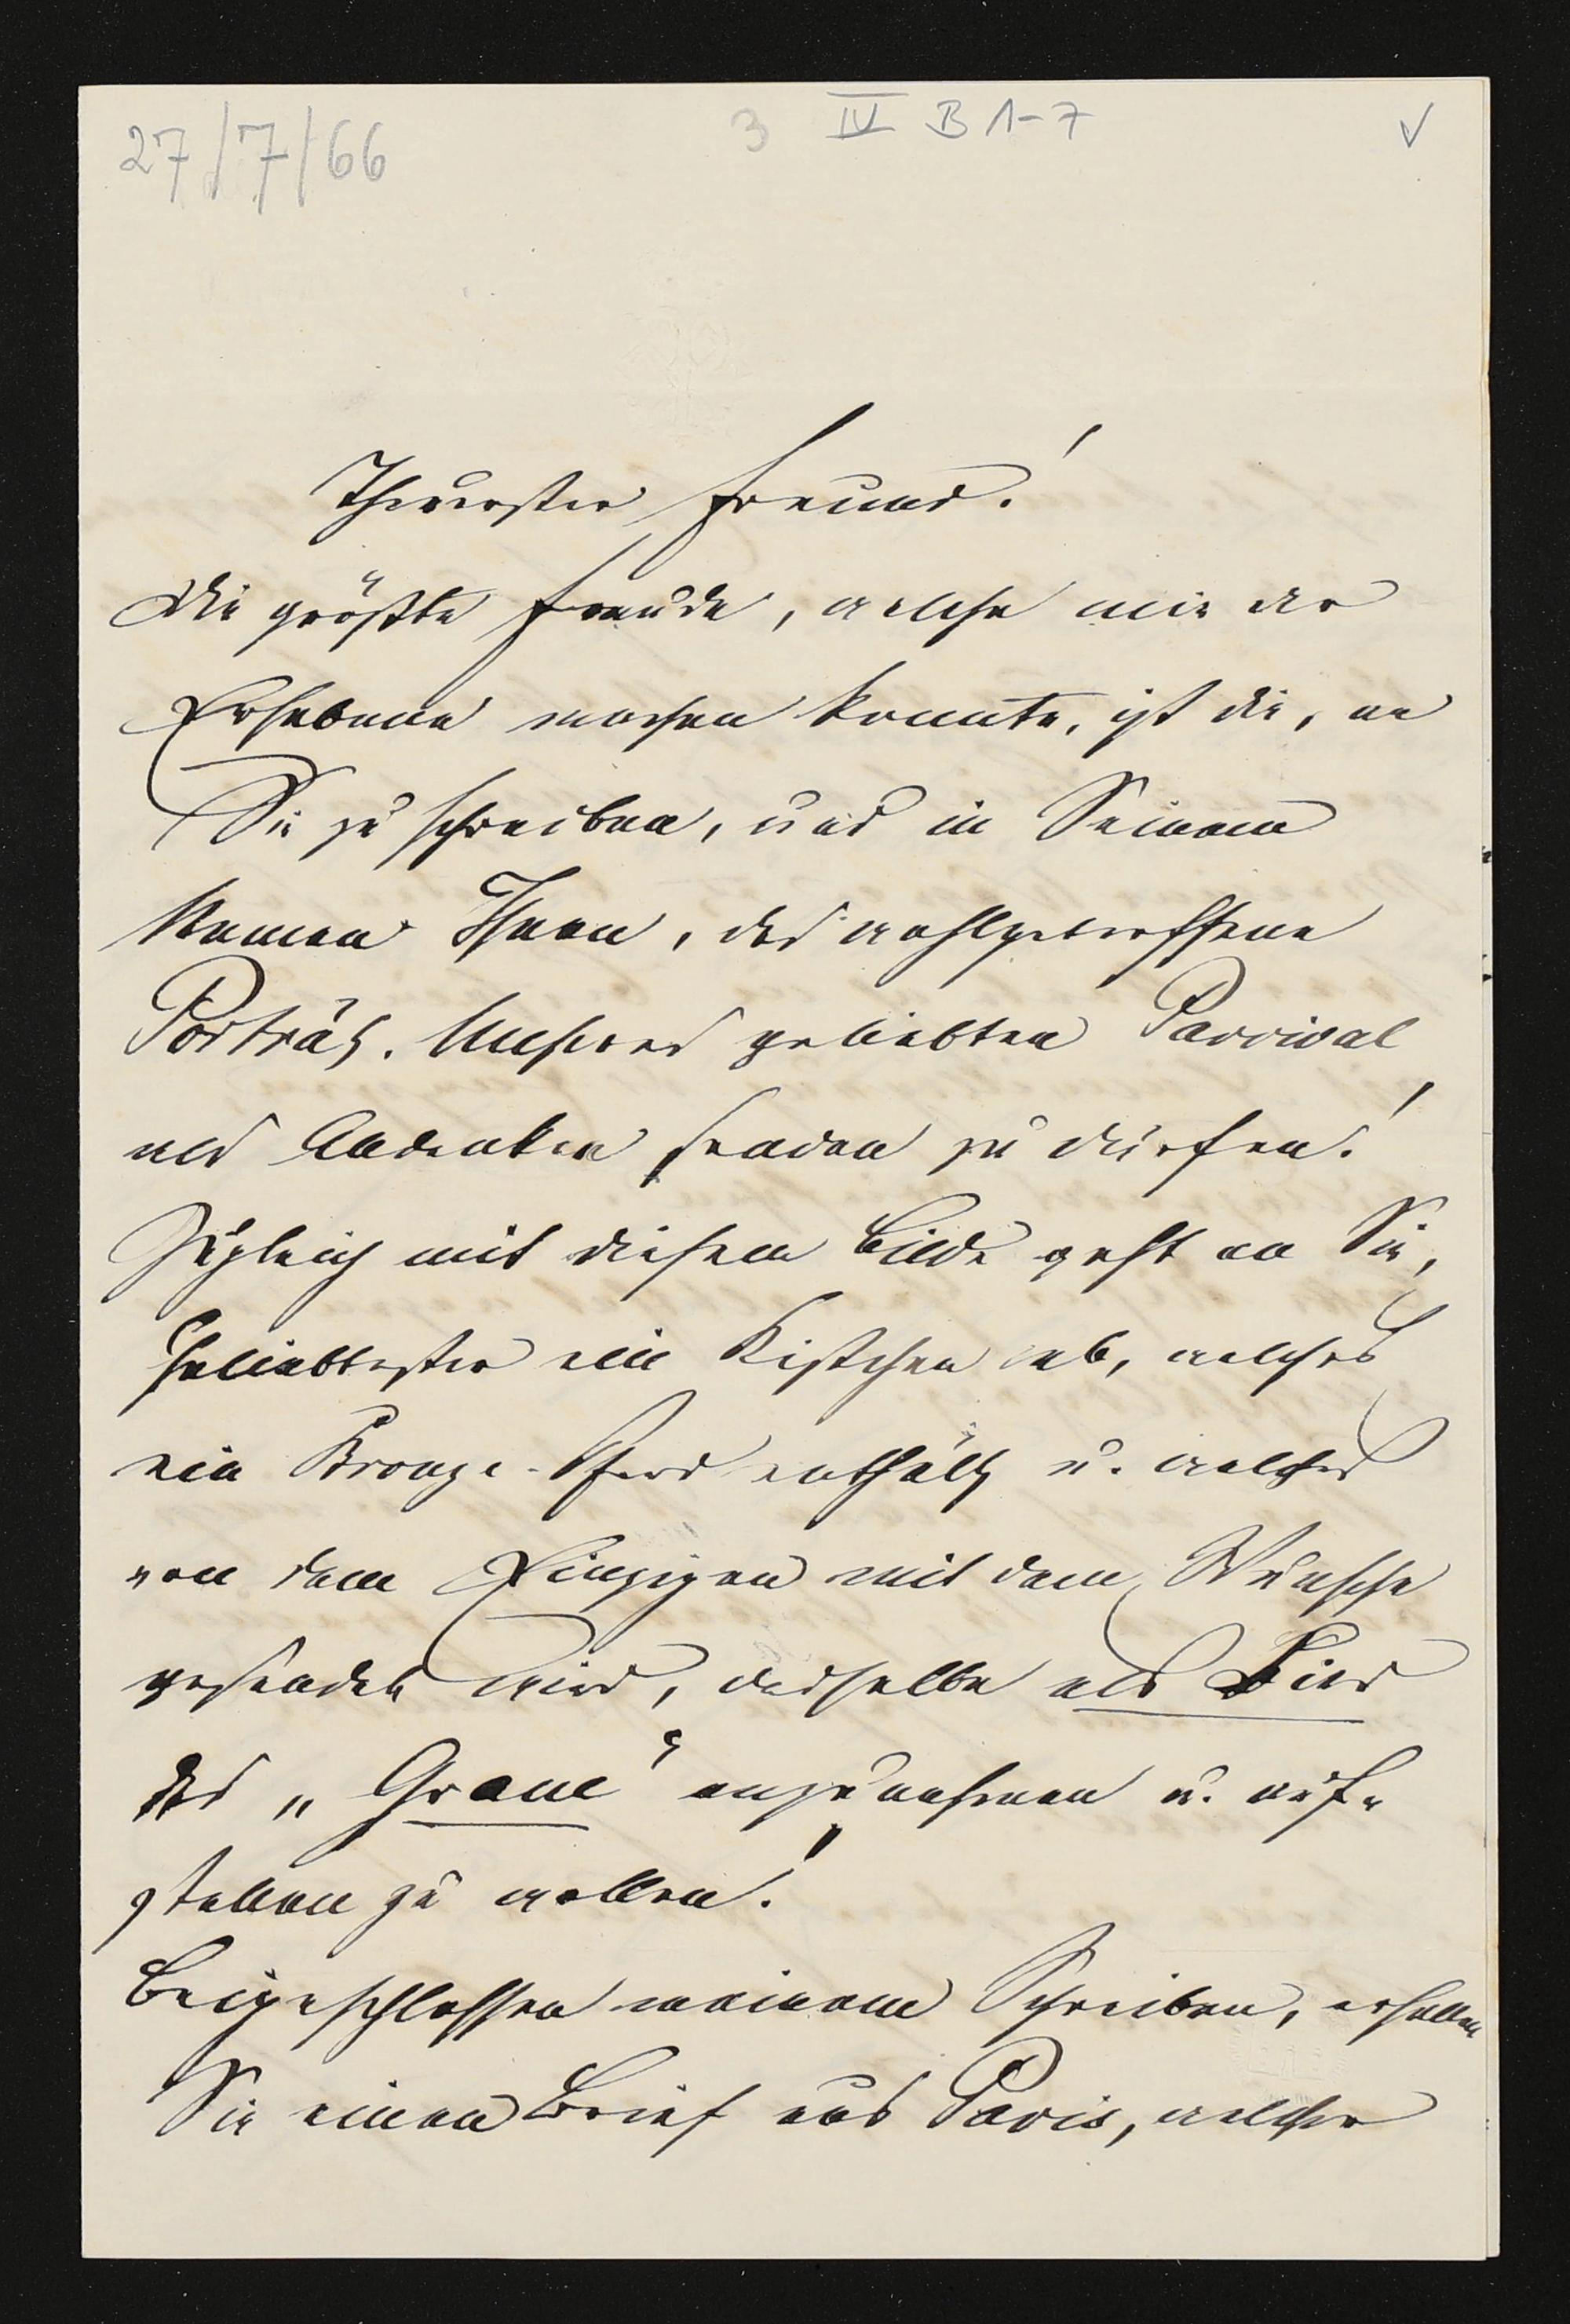 27/7/66
3 IV B 1-7 √
Theuerster Freund!
Die größte Freude, welche mir der
Erhabene machen konnte, ist die, an
Sie zu schreiben, und in Seinem
Namen Ihnen, das wohlgetroffene
Porträt. Unseres geliebten Parcival
als Andenken senden zu dürfen!
Zugleich mit diesem Bilde geht an Sie,
Geliebtester ein Kistchen ab, welches
ein Bronze-Pferd enthält u. welches
von dem Einzigen mit dem Wunsche
gesendet wird, dasselbe als Bild
des „Grane" anzunehmen u. auf-
stellen zu wollen!
Beigeschlossen meinem Schreiben, erhalten
Sie einen Brief aus Paris, welcher